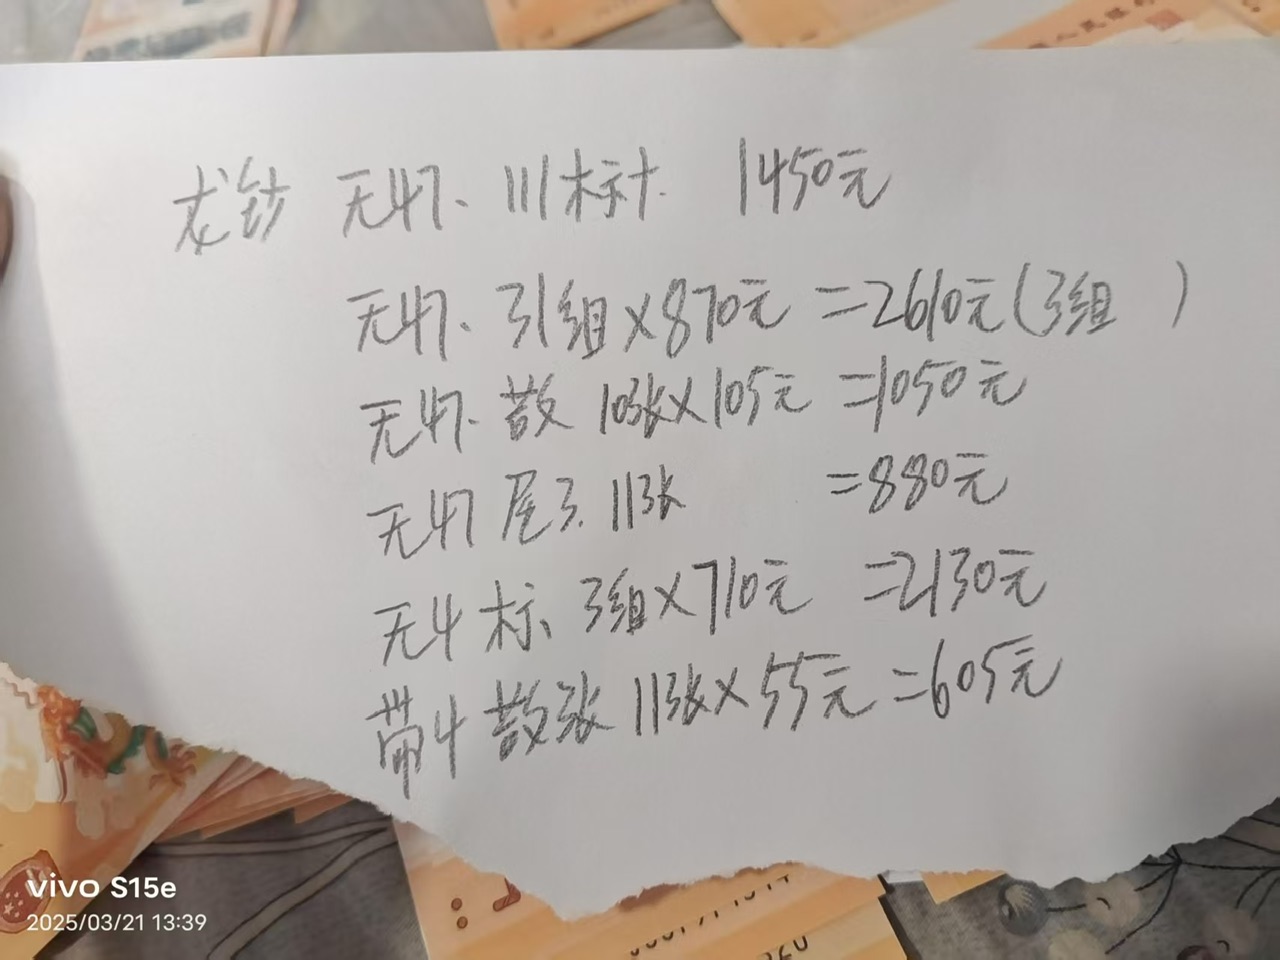 人民银行
龙钞 无47、111标十. 1450元
无47、引组×870元=2610元(3组 )
无47.散 10张×105元=1050元
无47尾3.11张 =880元
无4标、3组×710元 =2130元
带4散张11张×55元=605元
vivo S15e
2025/03/21 13:39